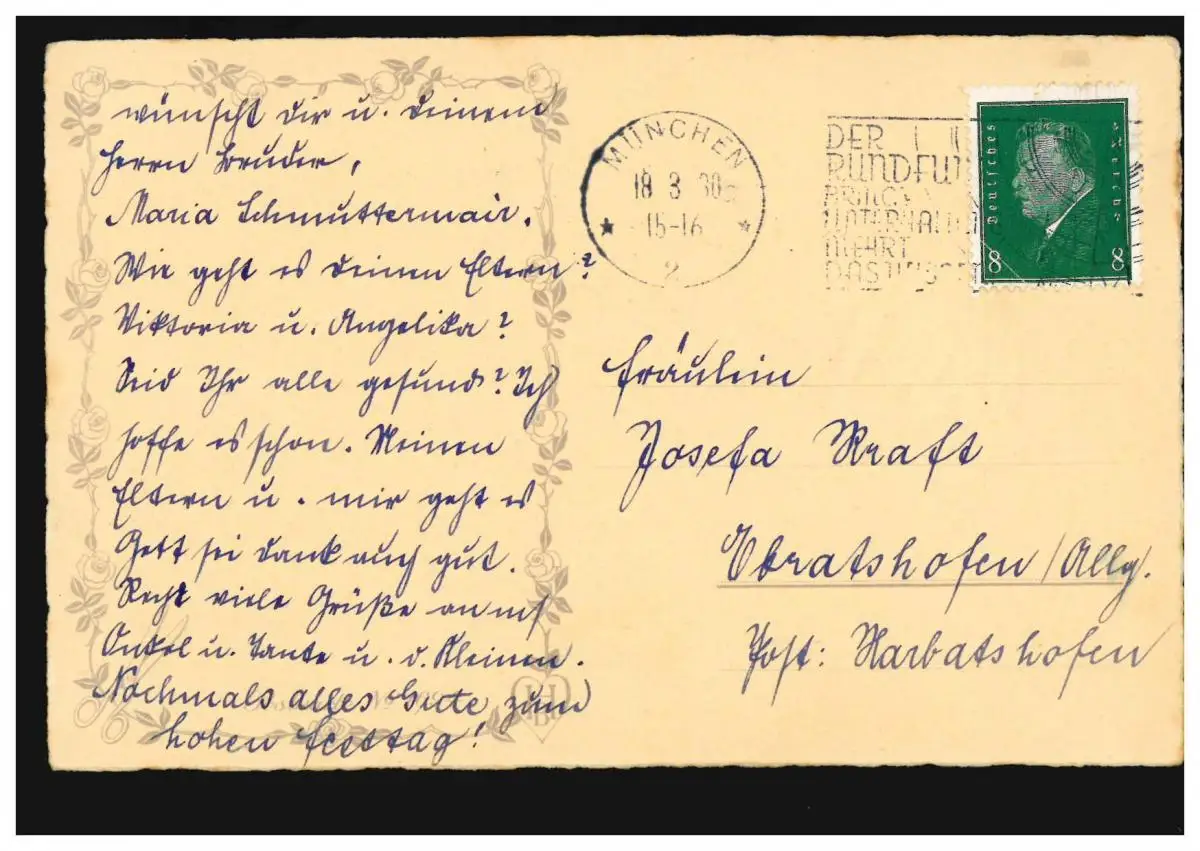 wünscht dir u. deinem
Herrn Bruder,
Maria Schmuttermair.
Wie geht es deinen Eltern?
Viktoria u. Angelika?
Seid Ihr alle gesund? Ich
hoffe es schon. Meinen
Eltern u. mir geht es
Gott sei dank auch gut.
Recht viele Grüße an
Onkel u. Tante u. d. Kleinen.
Nochmals alles Gute zum
hohen Festtag!
MÜNCHEN
18 3 30
15-16
2
DER
RUNDFU
Deutsches Reich
8 8
Fräulein
Josefa Kraft
Ebratshofen/Allg.
Post: Harbatshofen